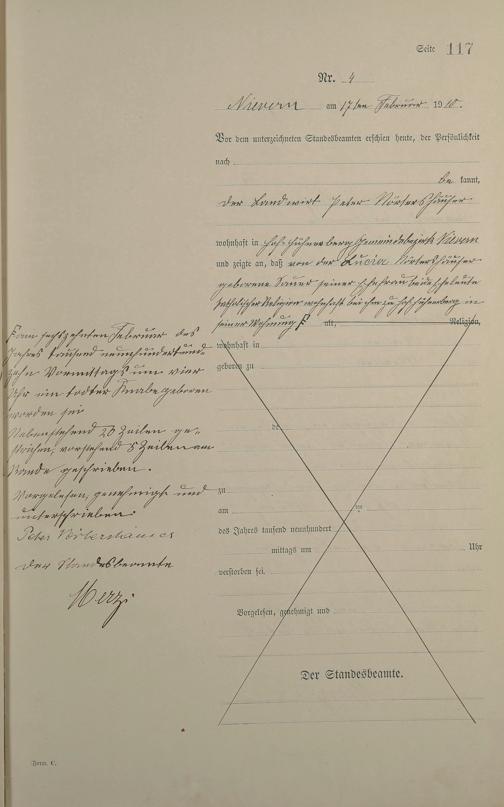 Seite 117
Nr. 4
Nievern am 17ten Februar 1910.
Vor dem unterzeichneten Standesbeamten erschien heute, der Persönlichkeit
nach
be kannt,
der Landwirt Peter Nörtershäuser
wohnhaft in Hof Hühnerberg Gemeindebezirk Nievern
und zeigte an, daß von der Lucia Nörtershäuser
geborene Sauer seiner Ehefrau beide Eheleute
katholischer Religion wohnhaft bei ihm zu Hof Hühnerberg in
seiner Wohnung F alt, Religion,
wohnhaft in
geboren zu
de
zu
am ten
des Jahres tausend neunhundert
mittags um Uhr
verstorben sei.
Vorgelesen, genehmigt und
Der Standesbeamte.
F am sechszehnten Februar des
Jahres tausend neunhundertund-
zehn Vormittags um vier
Uhr ein todter Knabe geboren
worden sei
Nebenstehend 20 Zeilen ge-
strichen, vorstehend 5 Zeilen am
Rande geschrieben.
Vorgelesen, genehmigt und
unterschrieben:
Peter Nörtershäuser
Der Standesbeamte
Form. C.